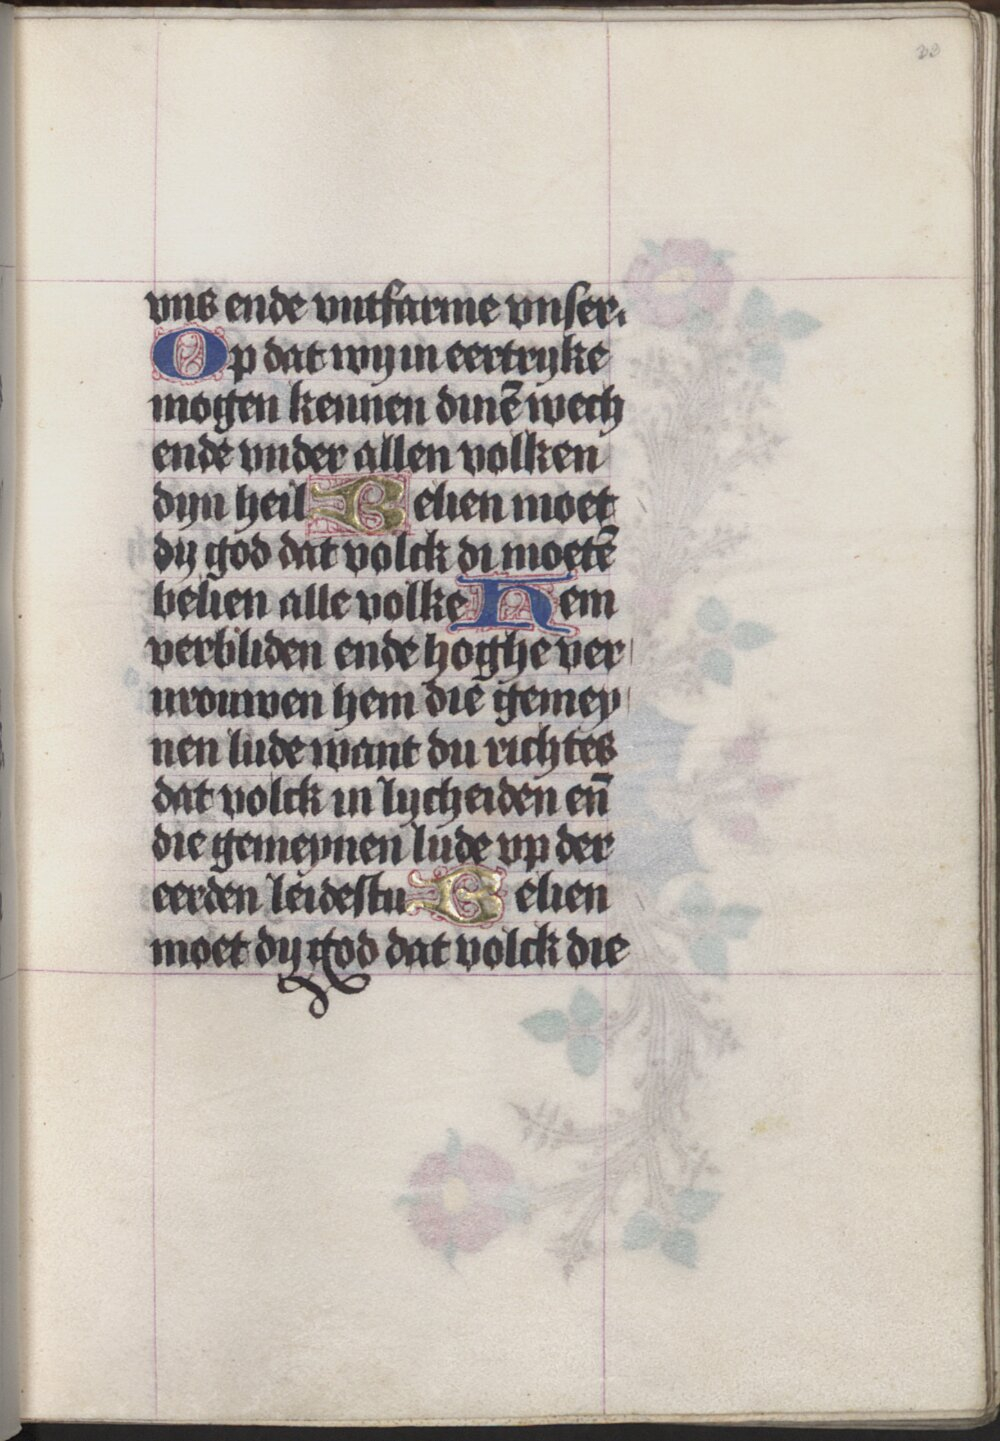 33
vns ende vntfarme vnser.
Op dat wy in eertryke
mogen kennen dinē wech
ende vnder allen volken
dyn heil Belien moet
dy god dat volck di moetē
belien alle volke Hem
verbliden ende hoghe ver
vrouwen hem die gemey
nen lude want du richtes
dat volck in lycheiden en̄
die gemeynen lude vp der
eerden leidestu Belien
moet dy god dat volck die